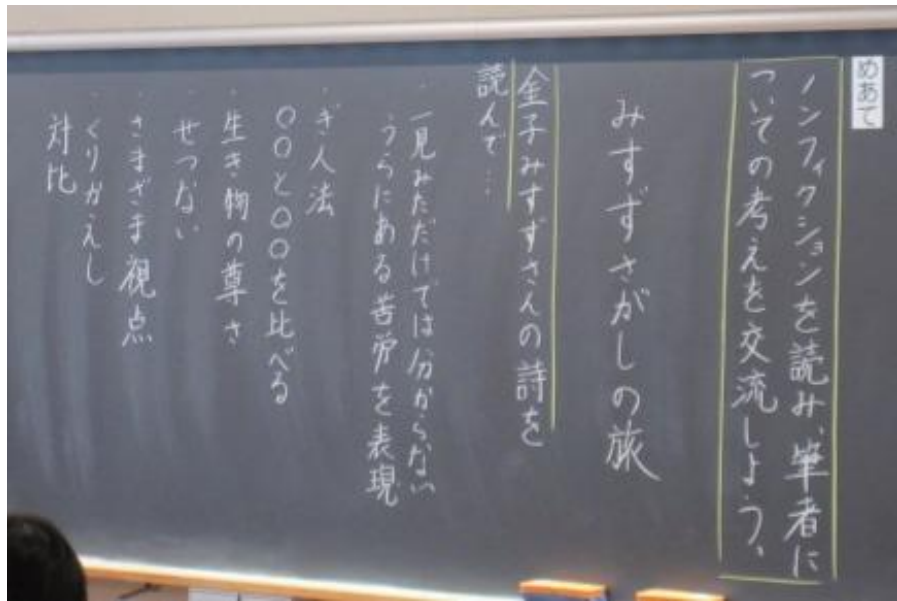 めあて
ノンフィクションを読み、筆者に
ついての考えを交流しよう、
みすずさがしの旅
金子みすずさんの詩を
読んで…
・一見みただけでは分からない
うらにある苦労を表現
・ぎ人法
〇〇と〇〇を比べる
・生き物の尊さ
・せつない
・さまざま視点
・くりかえし
対比